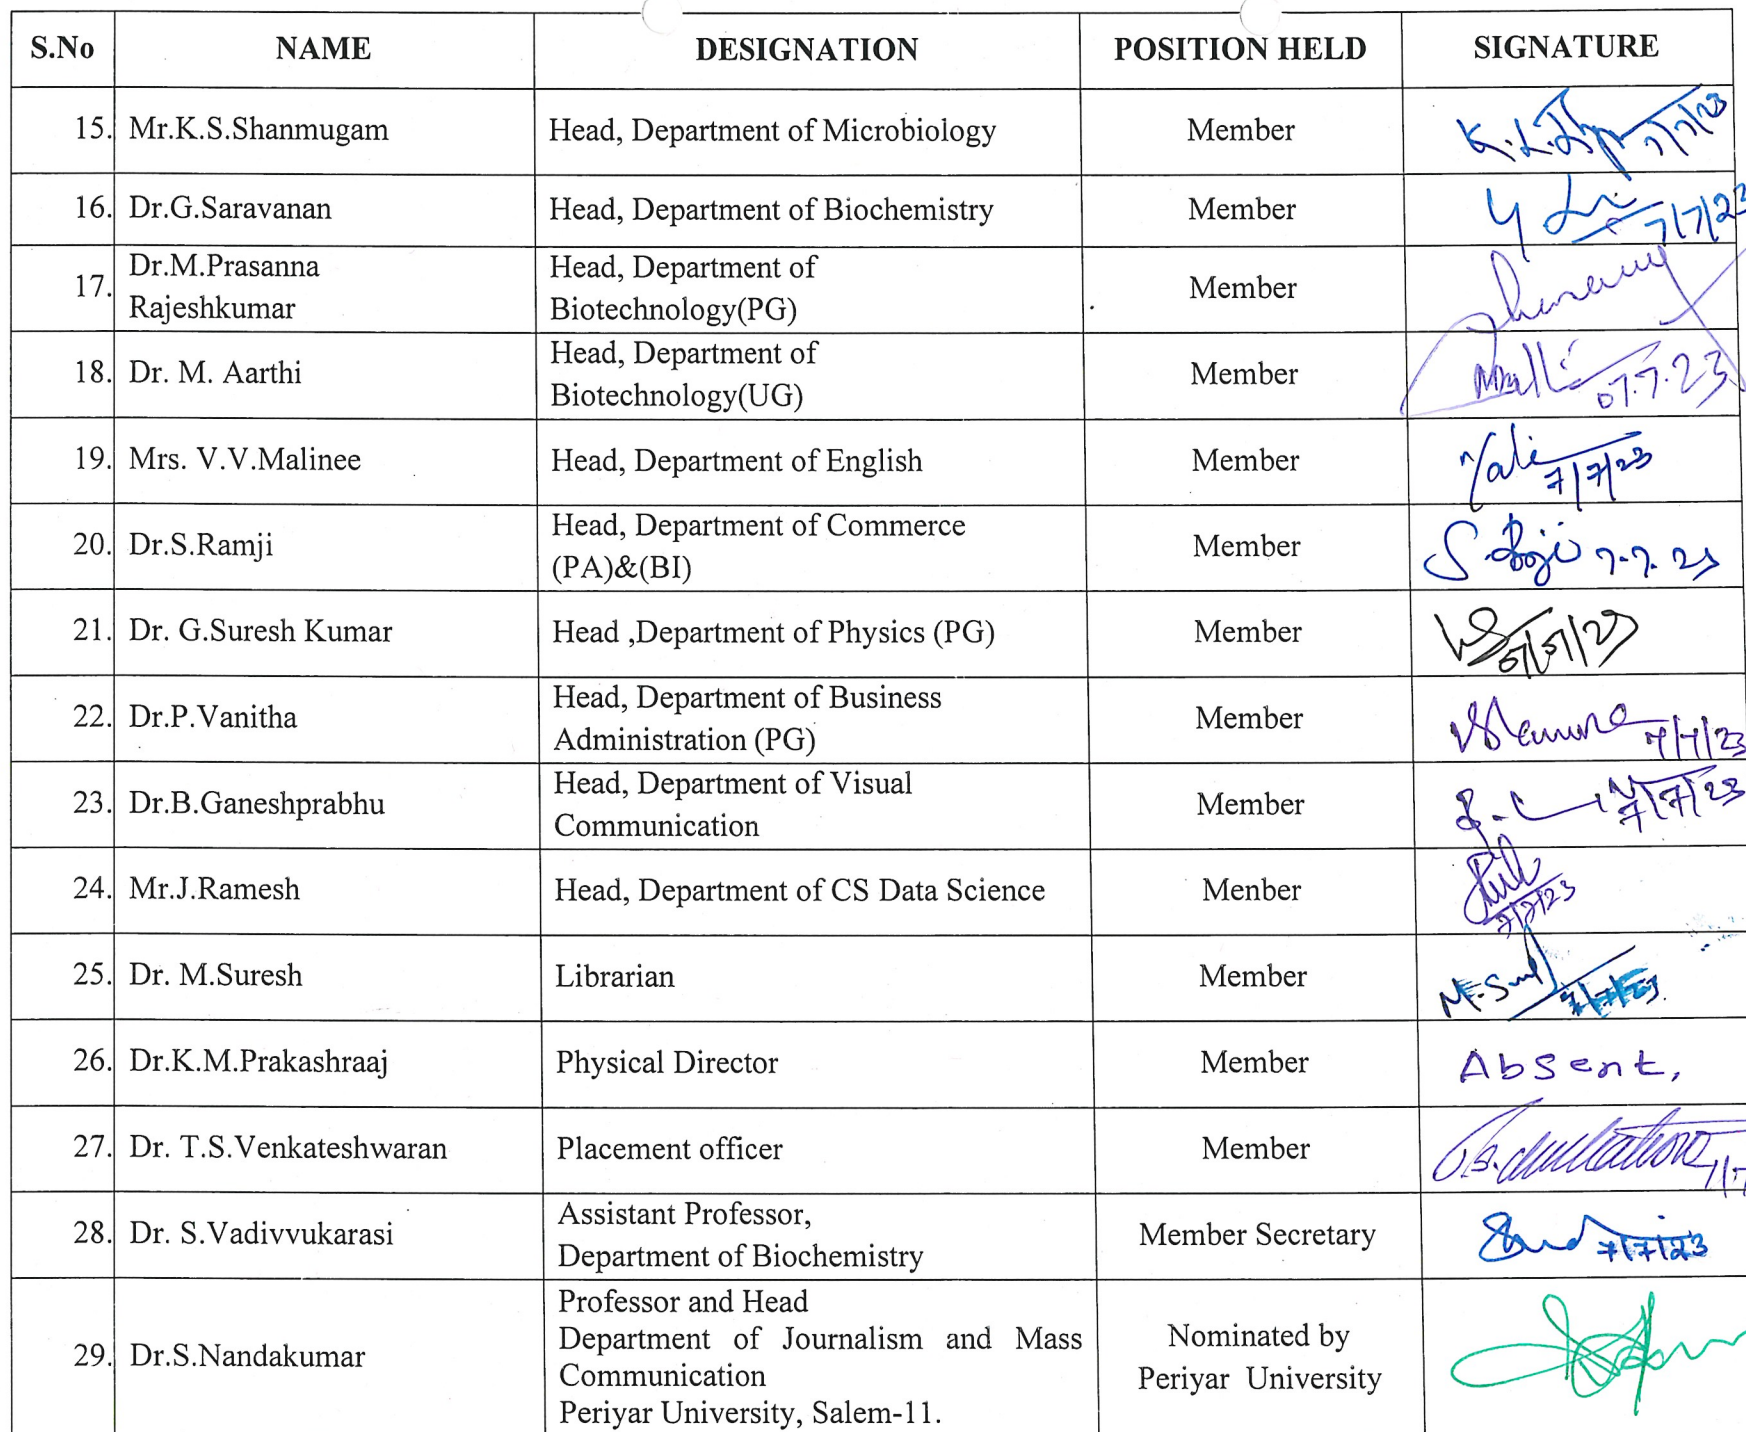 S.No NAME DESIGNATION POSITION HELD SIGNATURE
15. Mr.K.S.Shanmugam Head, Department of Microbiology Member 7/7/23
16. Dr.G.Saravanan Head, Department of Biochemistry Member 7/7/23
17. Dr.M.Prasanna
Rajeshkumar Head, Department of
Biotechnology(PG) Member
18. Dr. M. Aarthi Head, Department of
Biotechnology(UG) Member 07.7.23
19. Mrs. V.V.Malinee Head, Department of English Member 7/7/23
20. Dr.S.Ramji Head, Department of Commerce
(PA)&(BI) Member 7.7.23
21. Dr. G.Suresh Kumar Head ,Department of Physics (PG) Member 07/07/23
22. Dr.P.Vanitha Head, Department of Business
Administration (PG) Member 7/7/23
23. Dr.B.Ganeshprabhu Head, Department of Visual
Communication Member 7/7/23
24. Mr.J.Ramesh Head, Department of CS Data Science Menber 7/7/23
25. Dr. M.Suresh Librarian Member 7/7/23
26. Dr.K.M.Prakashraaj Physical Director Member Absent,
27. Dr. T.S.Venkateshwaran Placement officer Member
28. Dr. S.Vadivvukarasi Assistant Professor,
Department of Biochemistry Member Secretary 7/7/23
29. Dr.S.Nandakumar Professor and Head
Department of Journalism and Mass
Communication
Periyar University, Salem-11. Nominated by
Periyar University